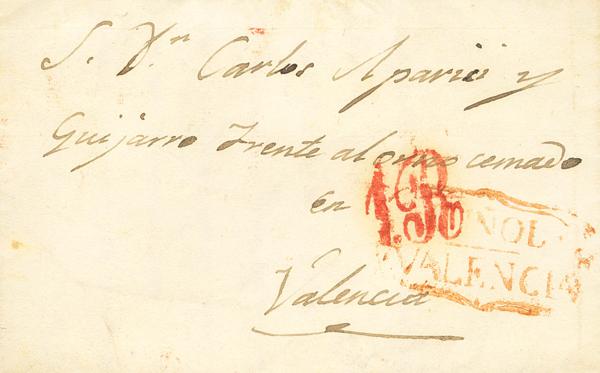 S. Dn Carlos Aparici y
Guijarro Frente al cemado
en
Valencia
ÑOL
VALENCIA